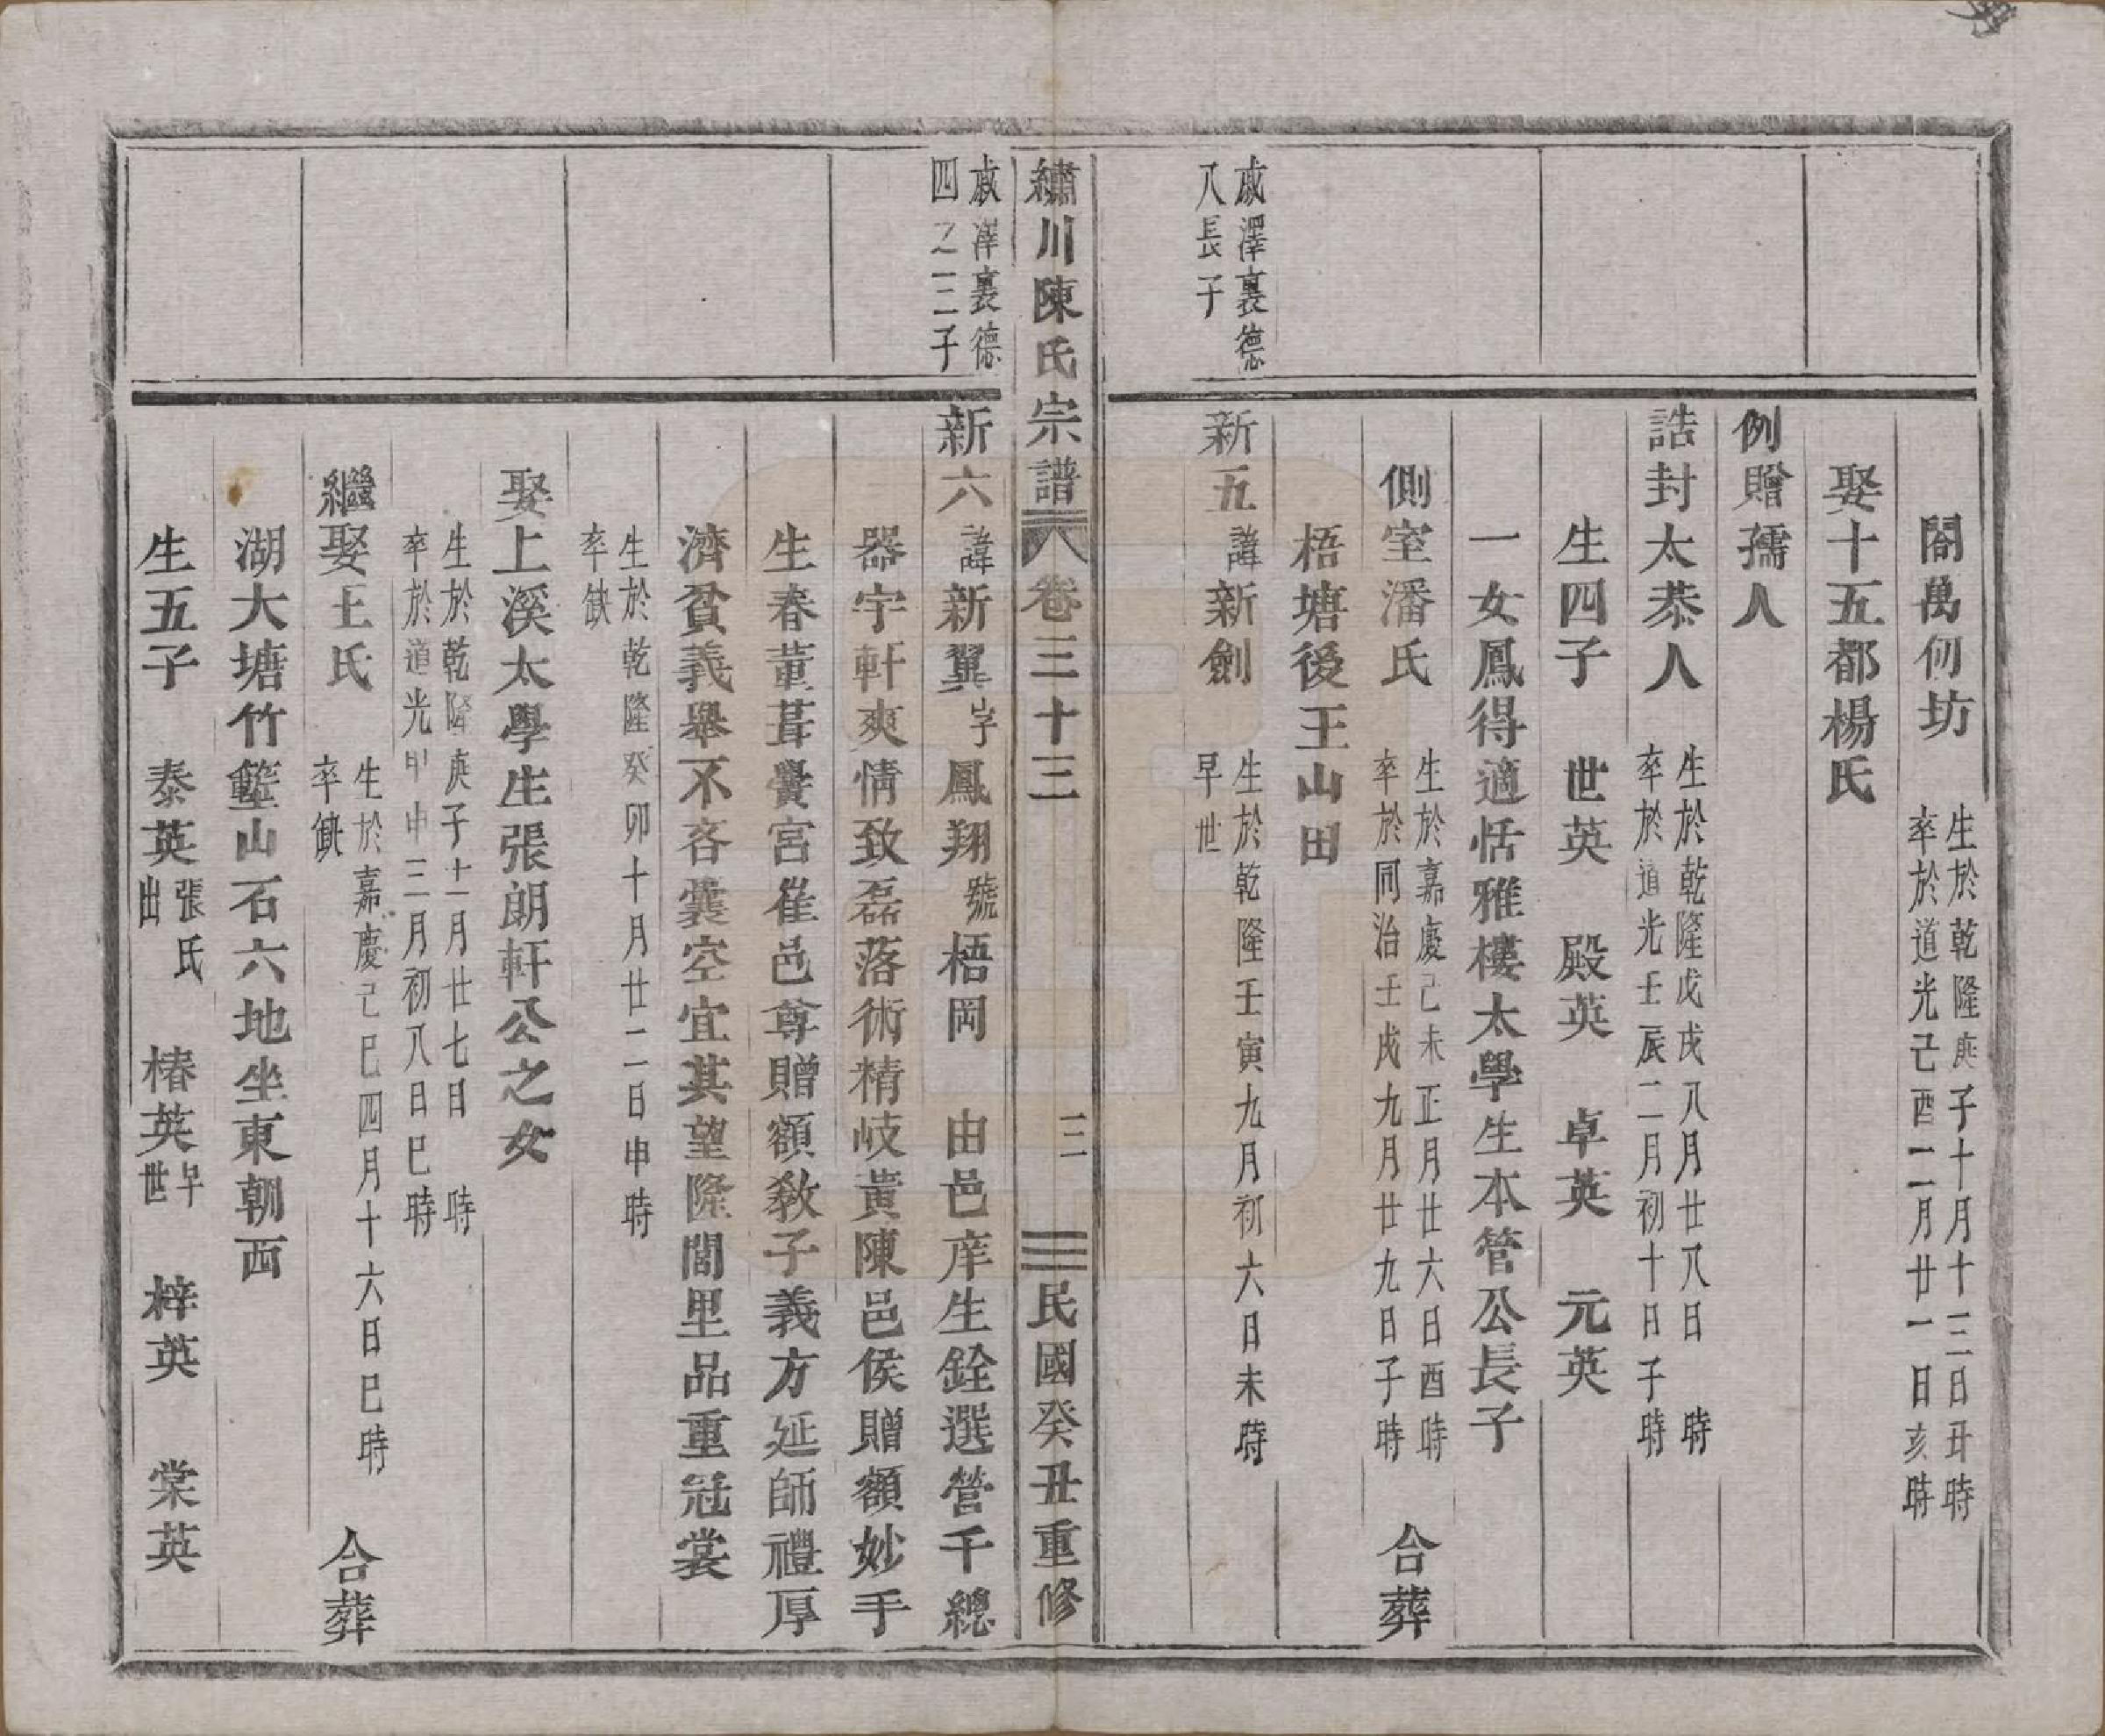 閤萬仞坊
生於乾隆庚子十月十三日丑時
卒於道光己酉二月廿一日亥時
娶十五都楊氏
例贈孺人
誥封太恭人
生於乾隆戊戌八月廿八日　時
卒於道光壬辰二月初十日子時
生四子　世英　殿英　卓英　元英
一女鳳得適恬雅樓太學生本管公長子
側室潘氏
生於嘉慶己未正月廿六日酉時
卒於同治壬戌九月廿九日子時
合葬
梧塘後王山田
歲澤裏德
八長子
新五
諱
新劍
生於乾隆壬寅九月初六日未時
早世
繡川陳氏宗譜　卷三十三　二　民國癸丑重修
歲澤裏德
四之二子
新六
諱
新翼
字
鳳翔
號
梧岡　由邑庠生銓選營千總
器宇軒爽情致磊落術精岐黃陳邑侯贈額妙手
生春董葺黌宮崔邑尊贈額教子義方延師禮厚
濟貧義舉不吝囊空宜其望隆閭里品重冠裳
生於乾隆癸卯十月廿二日申時
卒缺
娶上溪太學生張朗軒公之女
生於乾隆庚子十一月廿七日　時
卒於道光甲申三月初八日巳時
繼娶王氏
生於嘉慶己巳四月十六日巳時
卒缺
合葬
湖大塘竹籃山石六地坐東朝西
生五子　泰英
張氏
出
椿英
早
世
梓英　棠英